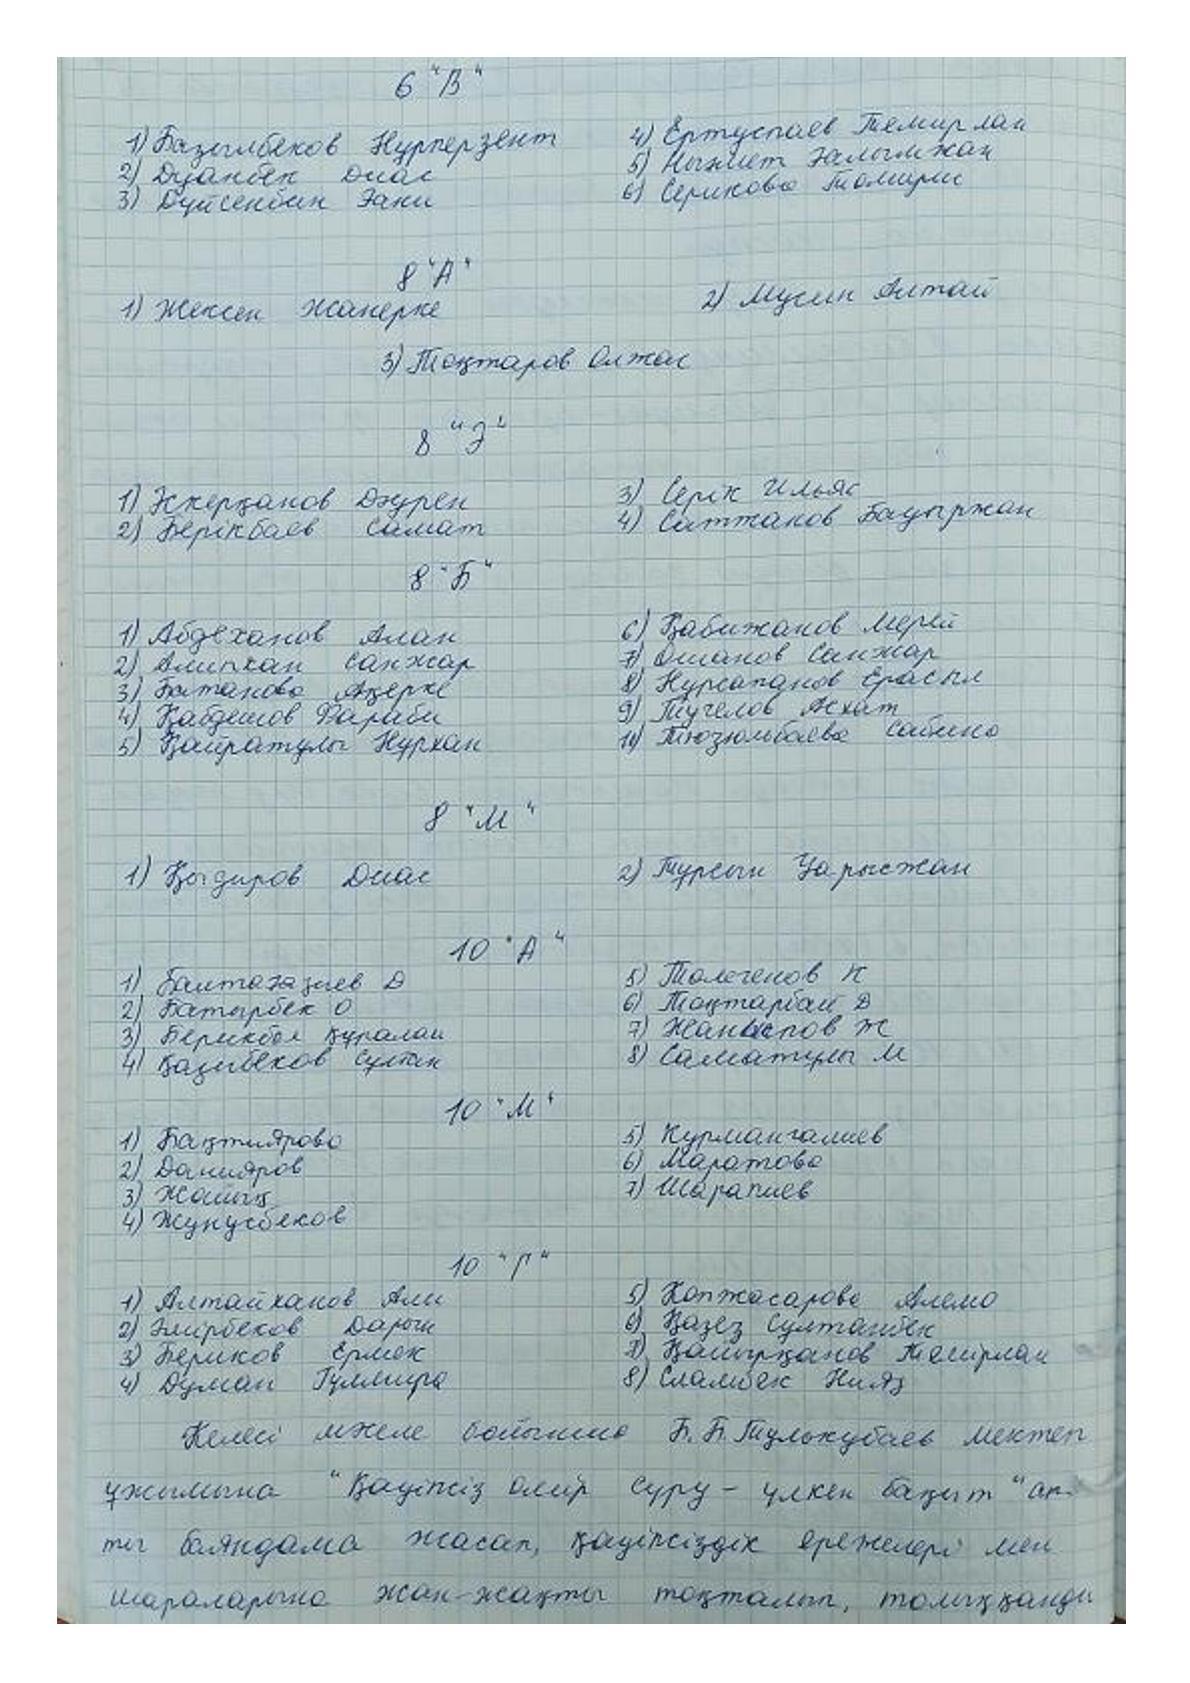 6 "В"
1) Базылбеков Нурперзент
2) Дуанбек Диас
3) Дүйсенбин Зани
4) Ертуспаев Темирлан
5) Ныгмет Залымжан
6) Серикова Томирис
8 "А"
1) Жексен Жанерке
2) Мусин Алтай
3) Тоқтаров Олжас
8 "Э"
1) Эскерқанов Дәурен
2) Берікбаев Самат
3) Серік Ильяс
4) Саттаков Бауыржан
8 "Б"
1) Абдеханов Алан
2) Алипхан Санжар
3) Батанова Ақерке
4) Қабдешов Фараби
5) Қайратұлы Нұрхан
6) Қабижанов Мерей
7) Ошанов Санжар
8) Нурсапанов Ерасыл
9) Тугелов Асхат
10) Тюзюмбаева Сабина
8 "М"
1) Қыдыров Диас
2) Турсын Уарысжан
10 "А"
1) Балтағазиев Д
2) Батырбек О
3) Берикбол Құралай
4) Қазыбеков Султан
5) Толегенов К
6) Тоқтарбай Д
7) Жаныспов Ж
8) Саматулы М
10 "М"
1) Бақтиярова
2) Данияров
3) Жошық
4) Жунусбеков
5) Курмангалиев
6) Маратова
7) Шарапиев
10 "Г"
1) Алтайханов Али
2) Әмірбеков Дарын
3) Бериков Ермек
4) Думан Гулмира
5) Копжасарова Алема
6) Қазез Султанбек
7) Қайырқанов Темірлан
8) Сламбек Нияз
Келесі мәселе бойынша Б.Б.Тулокубаев мектеп
ұжымына "Қауіпсіз өмір сүру – үлкен бақыт" ат-
ты баяндама жасап, қауіпсіздік ережелері мен
шараларына жан-жақты тоқталып, толыққанды